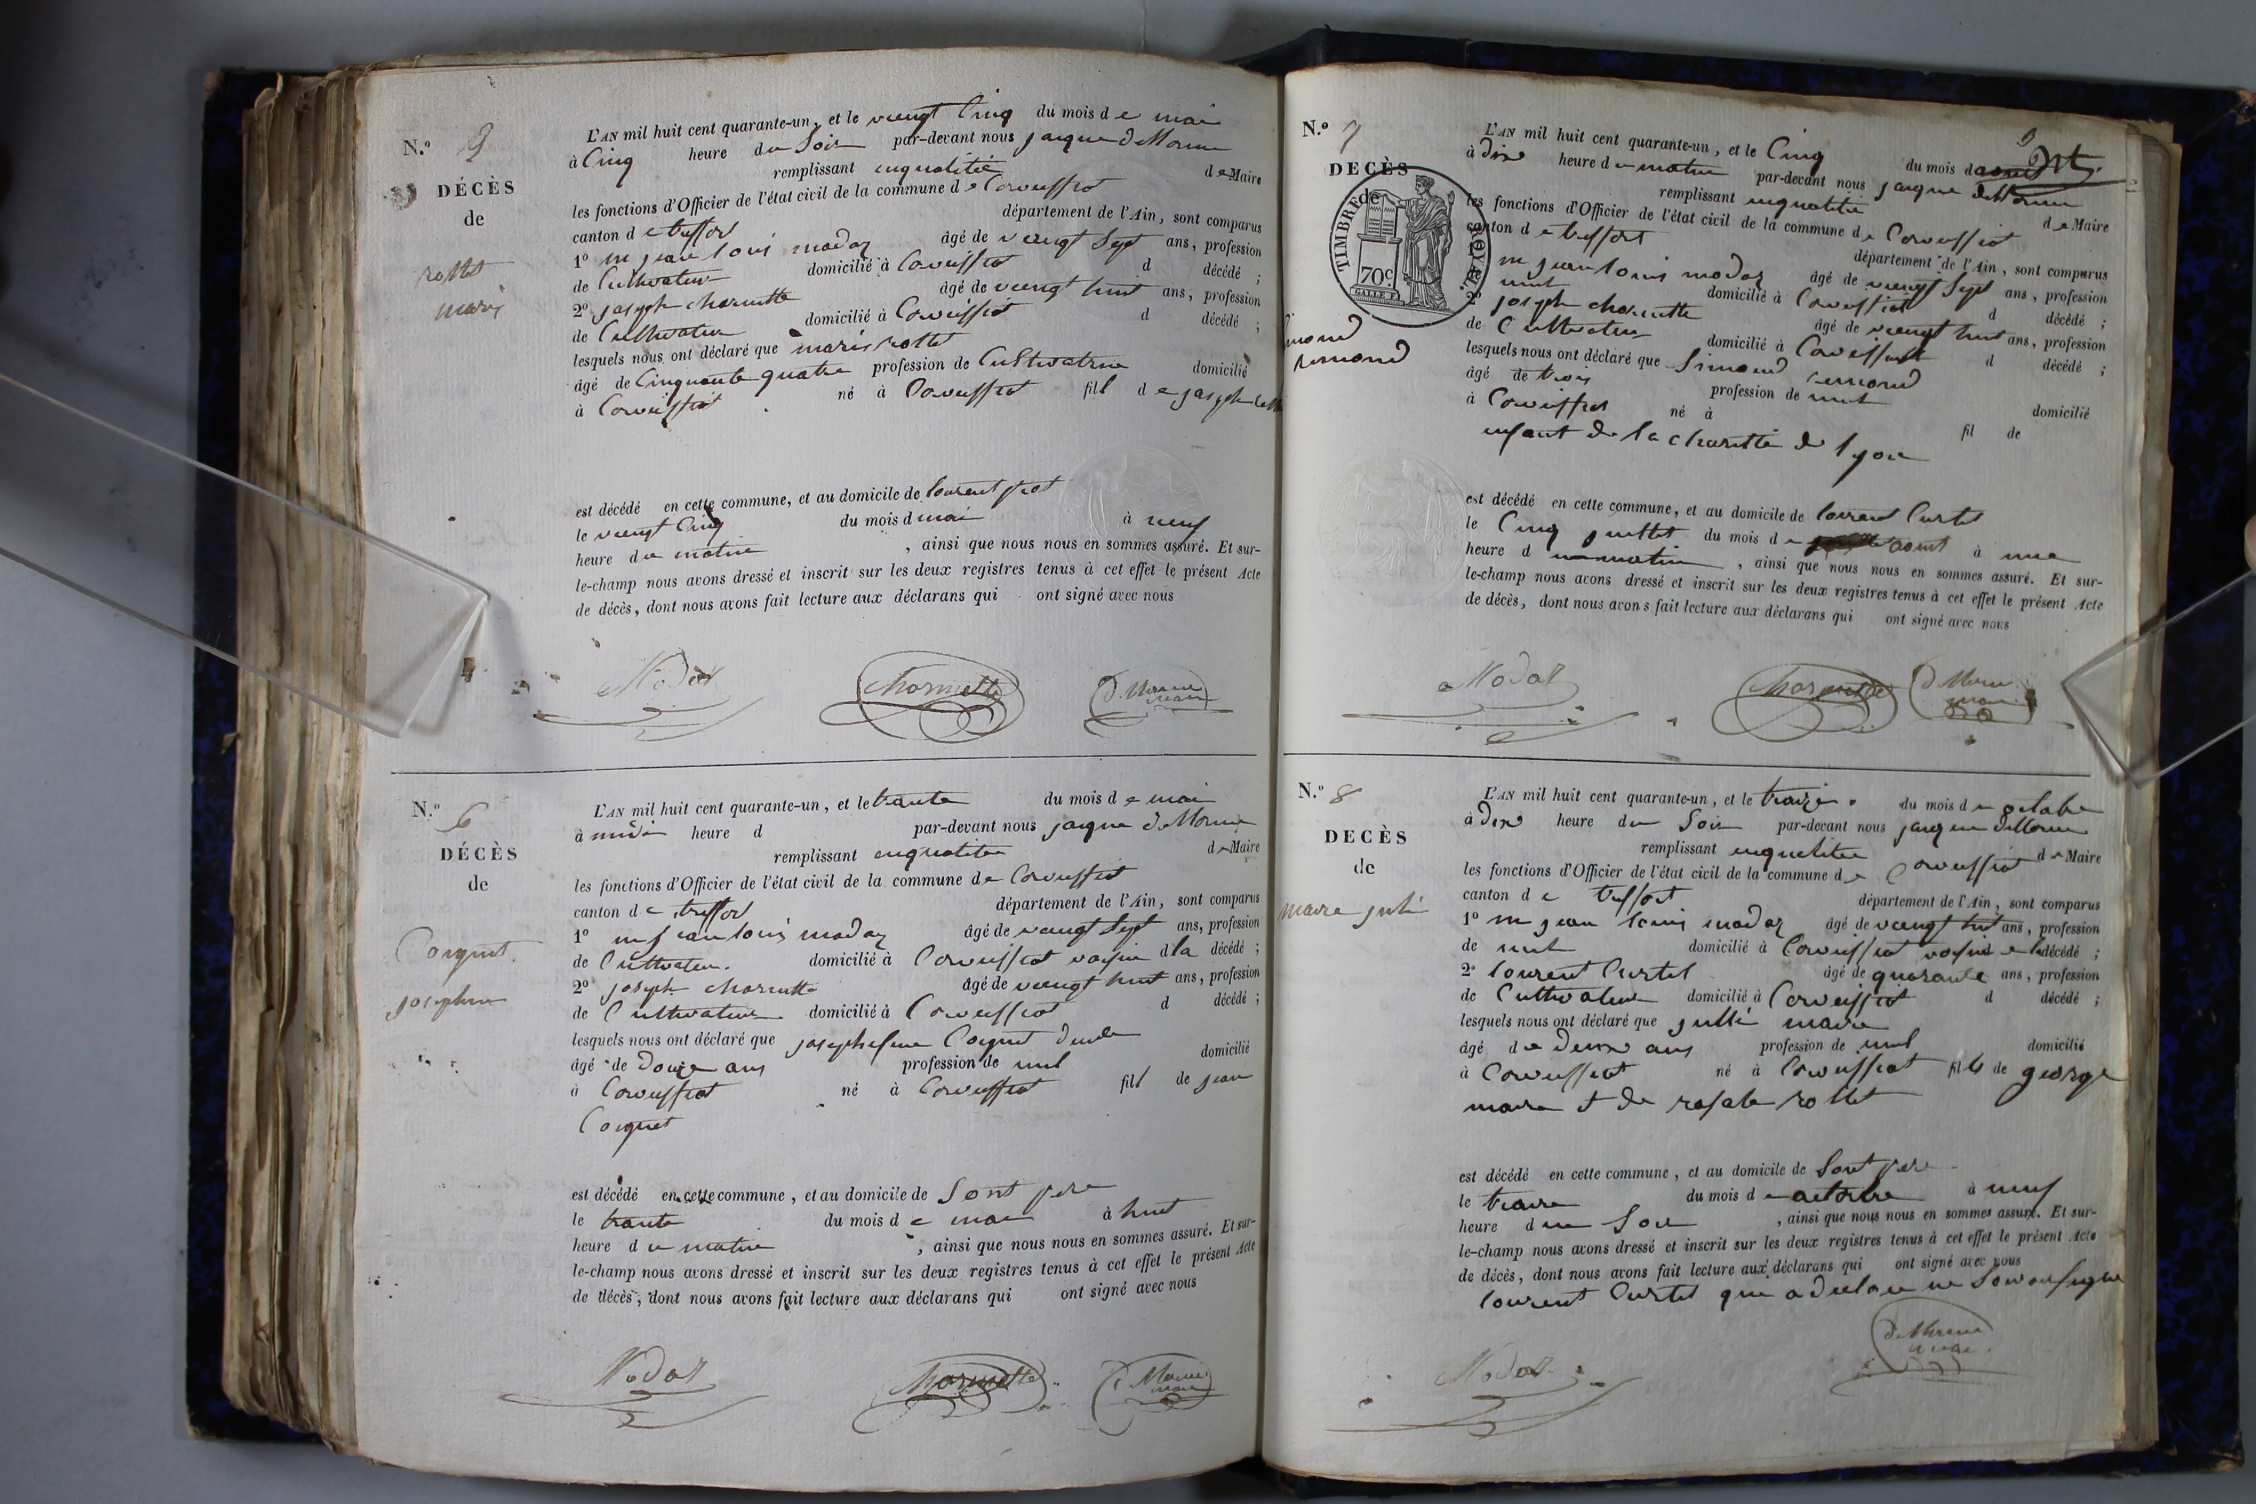 N.º 5
DÉCÈS
de
rollet
marie
L'AN mil huit cent quarante-un, et le vingt Cinq du mois de mai
à Cinq heure du Soir par-devant nous
remplissant de Maire
les fonctions d'Officier de l'état civil de la commune de Corveissiat
canton de treffort département de l'Ain, sont comparus
1º m jean louis nodaz âgé de vingt Sept ans, profession
de Cultivateur domicilié à Corveissiat d décédé ;
2º joseph charnette âgé de vingt huit ans, profession
de Cultivateur domicilié à Corveissiat d décédé ;
lesquels nous ont déclaré que marie rollet
âgé de Cinquante quatre profession de Cultivatrice domicilié
à Corveissiat né à Corveissiat fill de joseph
est décédé en cette commune, et au domicile de laurent
le vingt Cinq du mois d mai à neuf
heure du matin , ainsi que nous nous en sommes assuré. Et sur-
le-champ nous avons dressé et inscrit sur les deux registres tenus à cet effet le présent Acte
de décès, dont nous avons fait lecture aux déclarans qui ont signé avec nous
Nodaz Charnette maire
N.º 6
DÉCÈS
de
Coignet
josephine
L'AN mil huit cent quarante-un, et le trante du mois de mai
à midi heure d par-devant nous
remplissant de Maire
les fonctions d'Officier de l'état civil de la commune de Corveissiat
canton de treffort département de l'Ain, sont comparus
1º m jean louis nodaz âgé de vingt Sept ans, profession
de Cultivateur domicilié à Corveissiat voisin d la décédé ;
2º joseph charnette âgé de vingt huit ans, profession
de Cultivateur domicilié à Corveissiat d décédé ;
lesquels nous ont déclaré que Coignet
âgé de Douze ans profession de nul domicilié
à Corveissiat né à Corveissiat fill de jean
Coignet
est décédé en cette commune, et au domicile de Sont pere
le trante du mois de mai à huit
heure du matin , ainsi que nous nous en sommes assuré. Et sur-
le-champ nous avons dressé et inscrit sur les deux registres tenus à cet effet le présent Acte
de décès, dont nous avons fait lecture aux déclarans qui ont signé avec nous
Nodaz Charnette maire
N.º 7
DECÈS
de
TIMBRE ROYAL
70 c.
Simond
L'AN mil huit cent quarante-un, et le Cinq du mois d aout
à dix heure du matin par-devant nous
remplissant de Maire
les fonctions d'Officier de l'état civil de la commune de Corveissiat
canton de treffort département de l'Ain, sont comparus
m jean louis nodaz âgé de vingt Sept ans, profession
nul domicilié à Corveissiat d décédé ;
2º joseph charnette âgé de vingt huit ans, profession
de Cultivateur domicilié à Corveissiat d décédé ;
lesquels nous ont déclaré que Simond
âgé de trois profession de nul domicilié
à Corveissiat né à fil de
enfant de la charitté de lyon
est décédé en cette commune, et au domicile de laurent Curtet
le Cinq juillet du mois de aout à une
heure d matin , ainsi que nous nous en sommes assuré. Et sur-
le-champ nous avons dressé et inscrit sur les deux registres tenus à cet effet le présent Acte
de décès, dont nous avons fait lecture aux déclarans qui ont signé avec nous
Nodaz Charnette maire
N.º 8
DECÈS
de
maire julie
L'AN mil huit cent quarante-un, et le traize du mois de octobre
à dix heure du Soir par-devant nous
remplissant de Maire
les fonctions d'Officier de l'état civil de la commune de Corveissiat
canton de treffort département de l'Ain, sont comparus
1º m jean louis nodaz âgé de vingt huit ans, profession
de nul domicilié à Corveissiat voisin décédé ;
2º laurent Curtet âgé de quarante ans, profession
de Cultivateur domicilié à Corveissiat d décédé ;
lesquels nous ont déclaré que julie maire
âgé de deux ans profession de nul domicilié
à Corveissiat né à Corveissiat fill de george
maire et de rosalie rollet
est décédé en cette commune, et au domicile de Sont pere
le traize du mois de octobre à neuf
heure du Soir , ainsi que nous nous en sommes assuré. Et sur-
le-champ nous avons dressé et inscrit sur les deux registres tenus à cet effet le présent Acte
de décès, dont nous avons fait lecture aux déclarans qui ont signé avec nous
laurent Curtet qui a declaré ne
Nodaz maire